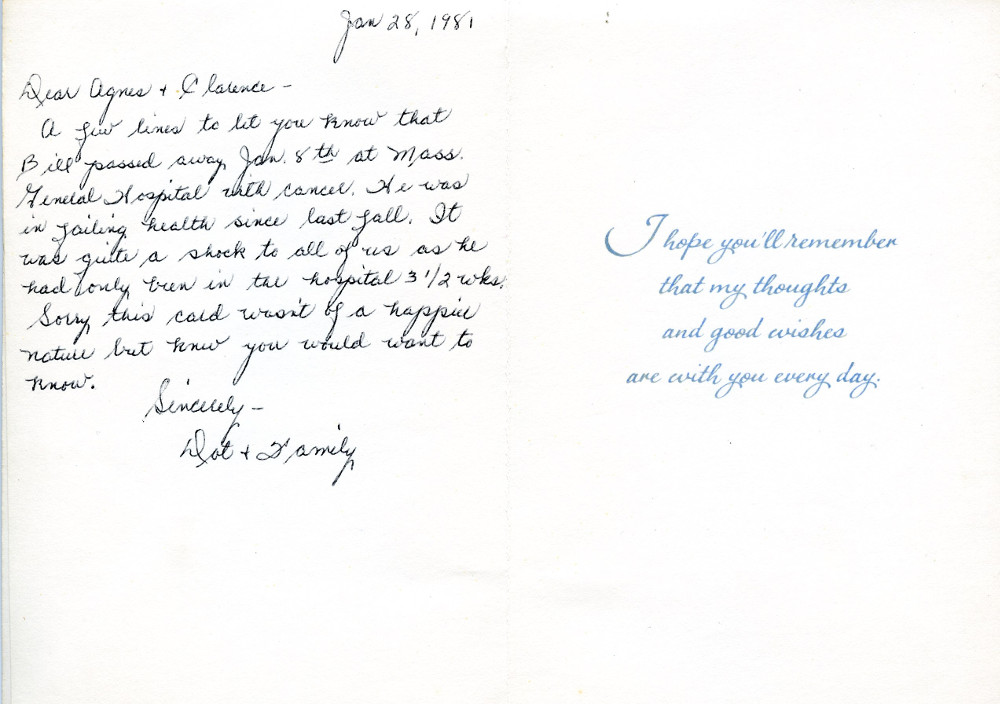 Jan 28, 1981
Dear Agnes + Clarence -
A few lines to let you know that
Bill passed away Jan. 8th at Mass.
General Hospital with cancer. He was
in failing health since last fall. It
was quite a shock to all of us as he
had only been in the hospital 3 1/2 wks.
Sorry this card wasn't of a happier
nature but knew you would want to
know.
Sincerely -
Dot + Family
I hope you'll remember
that my thoughts
and good wishes
are with you every day.